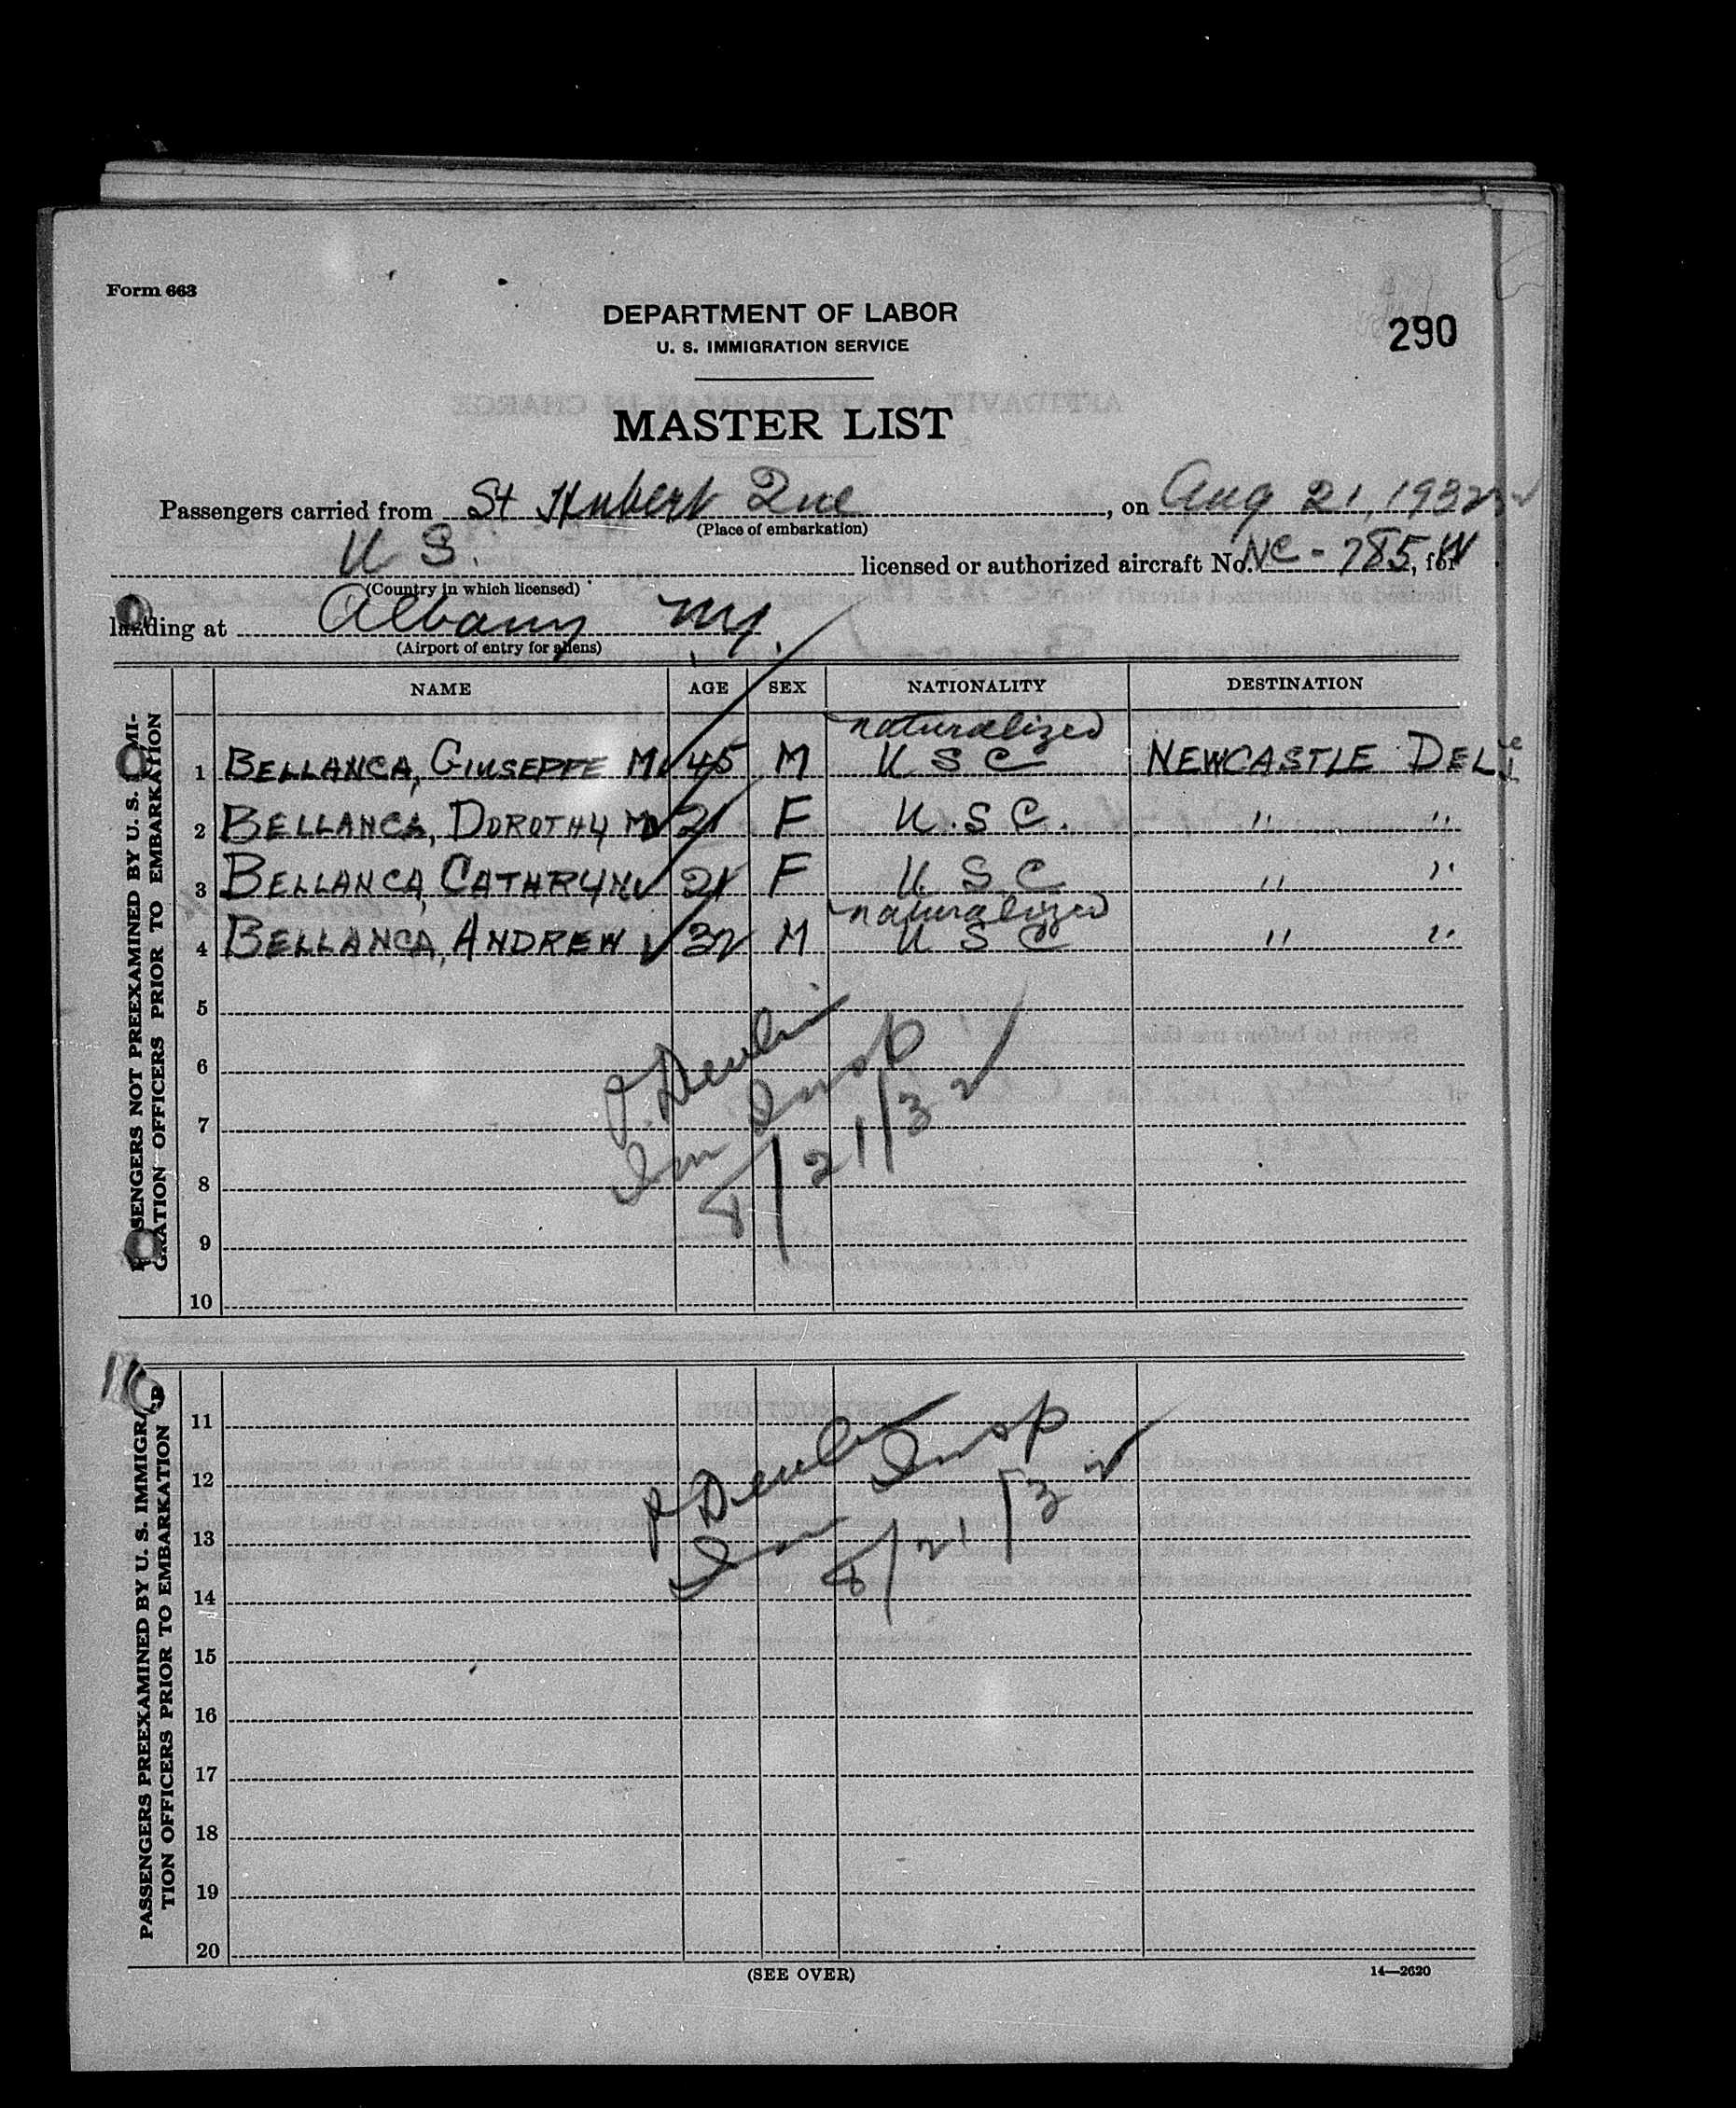 Form 663
DEPARTMENT OF LABOR
U. S. IMMIGRATION SERVICE
290
MASTER LIST
Passengers carried from St Hubert Que, on Aug 21, 1932
(Place of embarkation)
U S. licensed or authorized aircraft No. NC - 785, for W
(Country in which licensed)
landing at Albany NY.
(Airport of entry for aliens)
NAME AGE SEX NATIONALITY DESTINATION
PASSENGERS NOT PREEXAMINED BY U. S. IMMI-
GRATION OFFICERS PRIOR TO EMBARKATION
naturalized
1 BELLANCA, GIUSEPPE M. 45 M U S C NEWCASTLE DEL.
2 BELLANCA, DOROTHY M 21 F U. S C. " "
3 BELLANCA, CATHRYN 21 F U. S. C " "
naturalized
4 BELLANCA, ANDREW 32 M U S C " "
5
6
7
8
9
10
Im Insp
8/21/32
PASSENGERS PREEXAMINED BY U. S. IMMIGRA-
TION OFFICERS PRIOR TO EMBARKATION
11
12
13
14
15
16
17
18
19
20
Im Insp
8/21/32
(SEE OVER)
14—2620